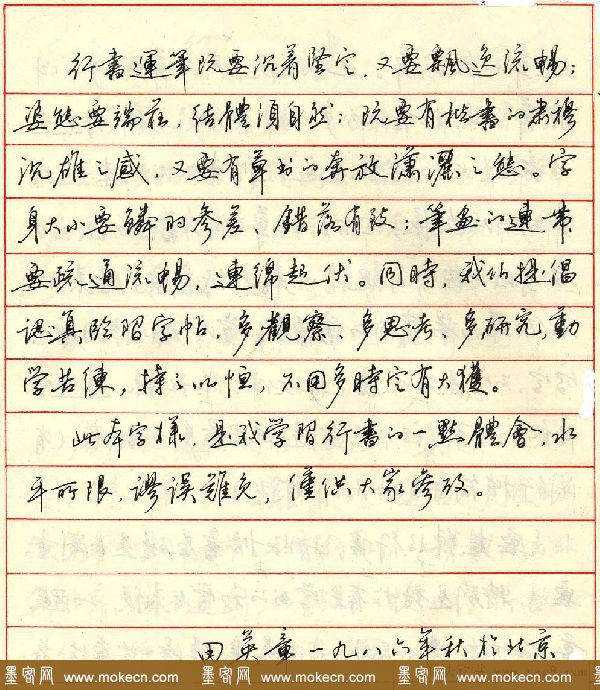 行書運筆既要沉着堅定，又要飄逸流暢；
姿態要端莊，結體須自然；既要有楷書的肅穆
沉雄之感，又要有草书的奔放瀟灑之態。字
身大小要鱗羽參差、錯落有致；筆画的連帶
要疏通流暢，連綿起伏。同時，我们提倡
認真臨習字帖，多觀察、多思考、多研究，勤
学苦練，持之以恒，不用多時定有大獲。
此本字樣，是我学習行書的一點體會，水
平所限，謬误難免，僅供大家參攷。
田英章一九八六年秋於北京
墨客网 www.mokecn.com 墨客网 www.mokecn.com 墨客网 www.mokecn.com